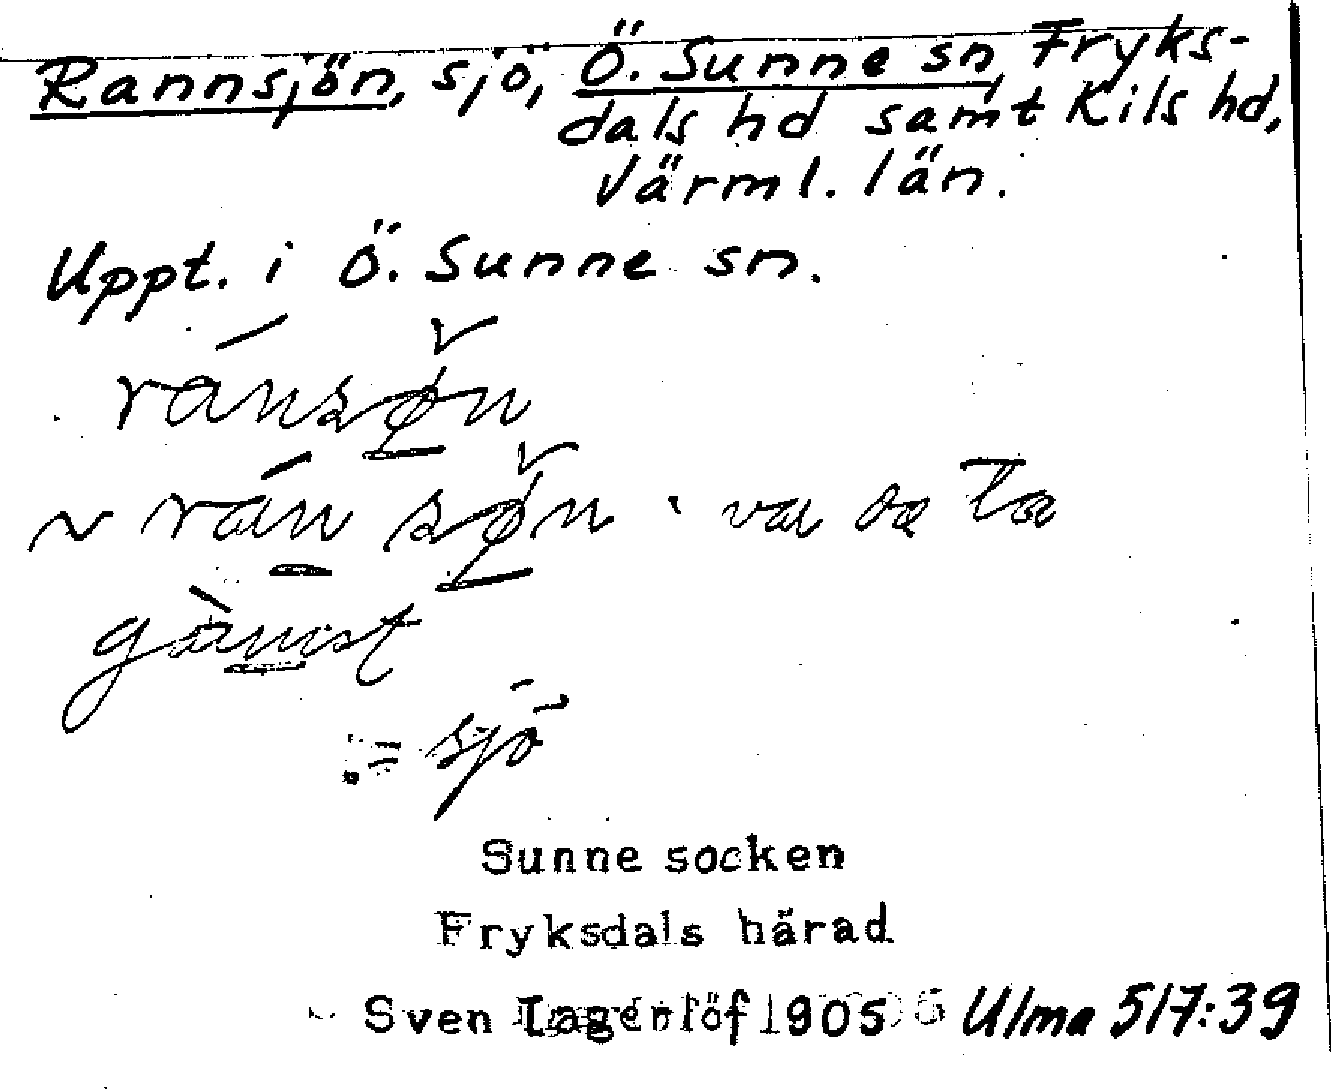 Rannsjön, sjö, Ö. Sunne sn, Fryks-
dals hd samt Kils hd,
Värml. län.
Uppt. i Ö. Sunne sn.
ránsø̨̌n
~ rán sø̨̌n
gànast
:= sjö
Sunne socken
Fryksdals härad
Sven Lagerlöf 1905 Ulma 517:39